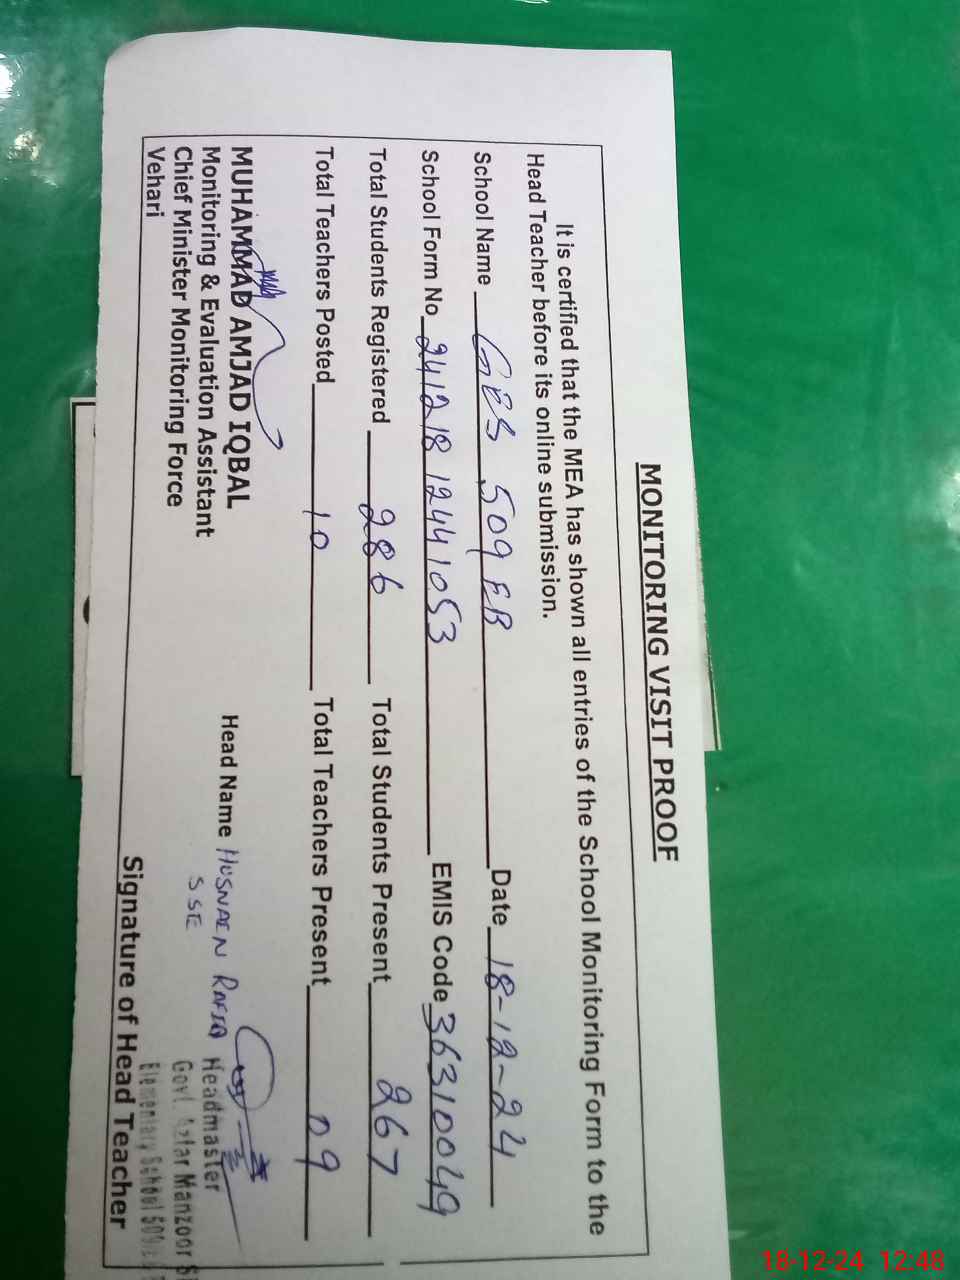 MONITORING VISIT PROOF
It is certified that the MEA has shown all entries of the School Monitoring Form to the
Head Teacher before its online submission.
School Name GES 509 EB Date 18-12-24
School Form No 241218 12441053 EMIS Code 36310049
Total Students Registered 286 Total Students Present 267
Total Teachers Posted 10 Total Teachers Present 09
MUHAMMAD AMJAD IQBAL
Monitoring & Evaluation Assistant
Chief Minister Monitoring Force
Vehari
Head Name HUSNAEN RAFIQ
SSE
Headmaster
Govt. Manzoor
Elementary School 509
Signature of Head Teacher
18-12-24 12:48